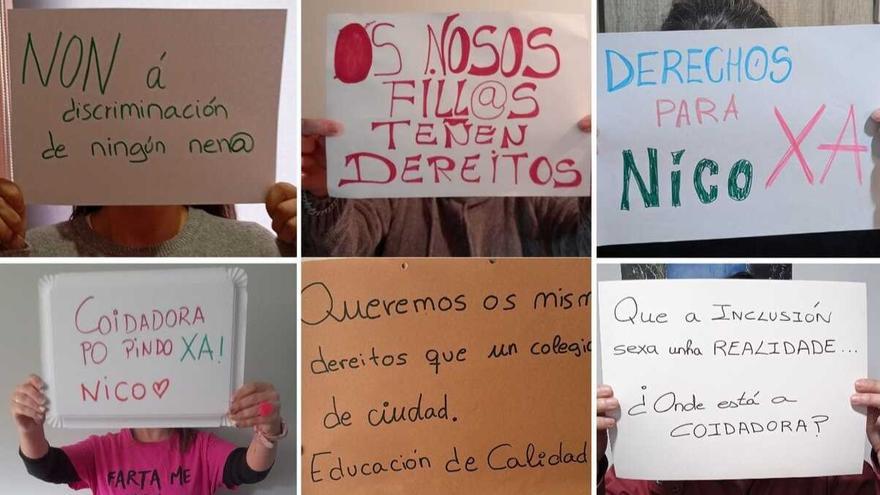 NON á
discriminación
de ningún nen@
OS NOSOS
FILL@S
TEÑEN
DEREITOS
DERECHOS
PARA
Nico XA
COIDADORA
PO PINDO XA!
NICO♡
FARTA ME
Queremos os mism
dereitos que un colegio
de ciudad.
Educación de Calidad
QUE A INCLUSIÓN
SEXA UNHA REALIDADE...
¿Onde está a
COIDADORA?